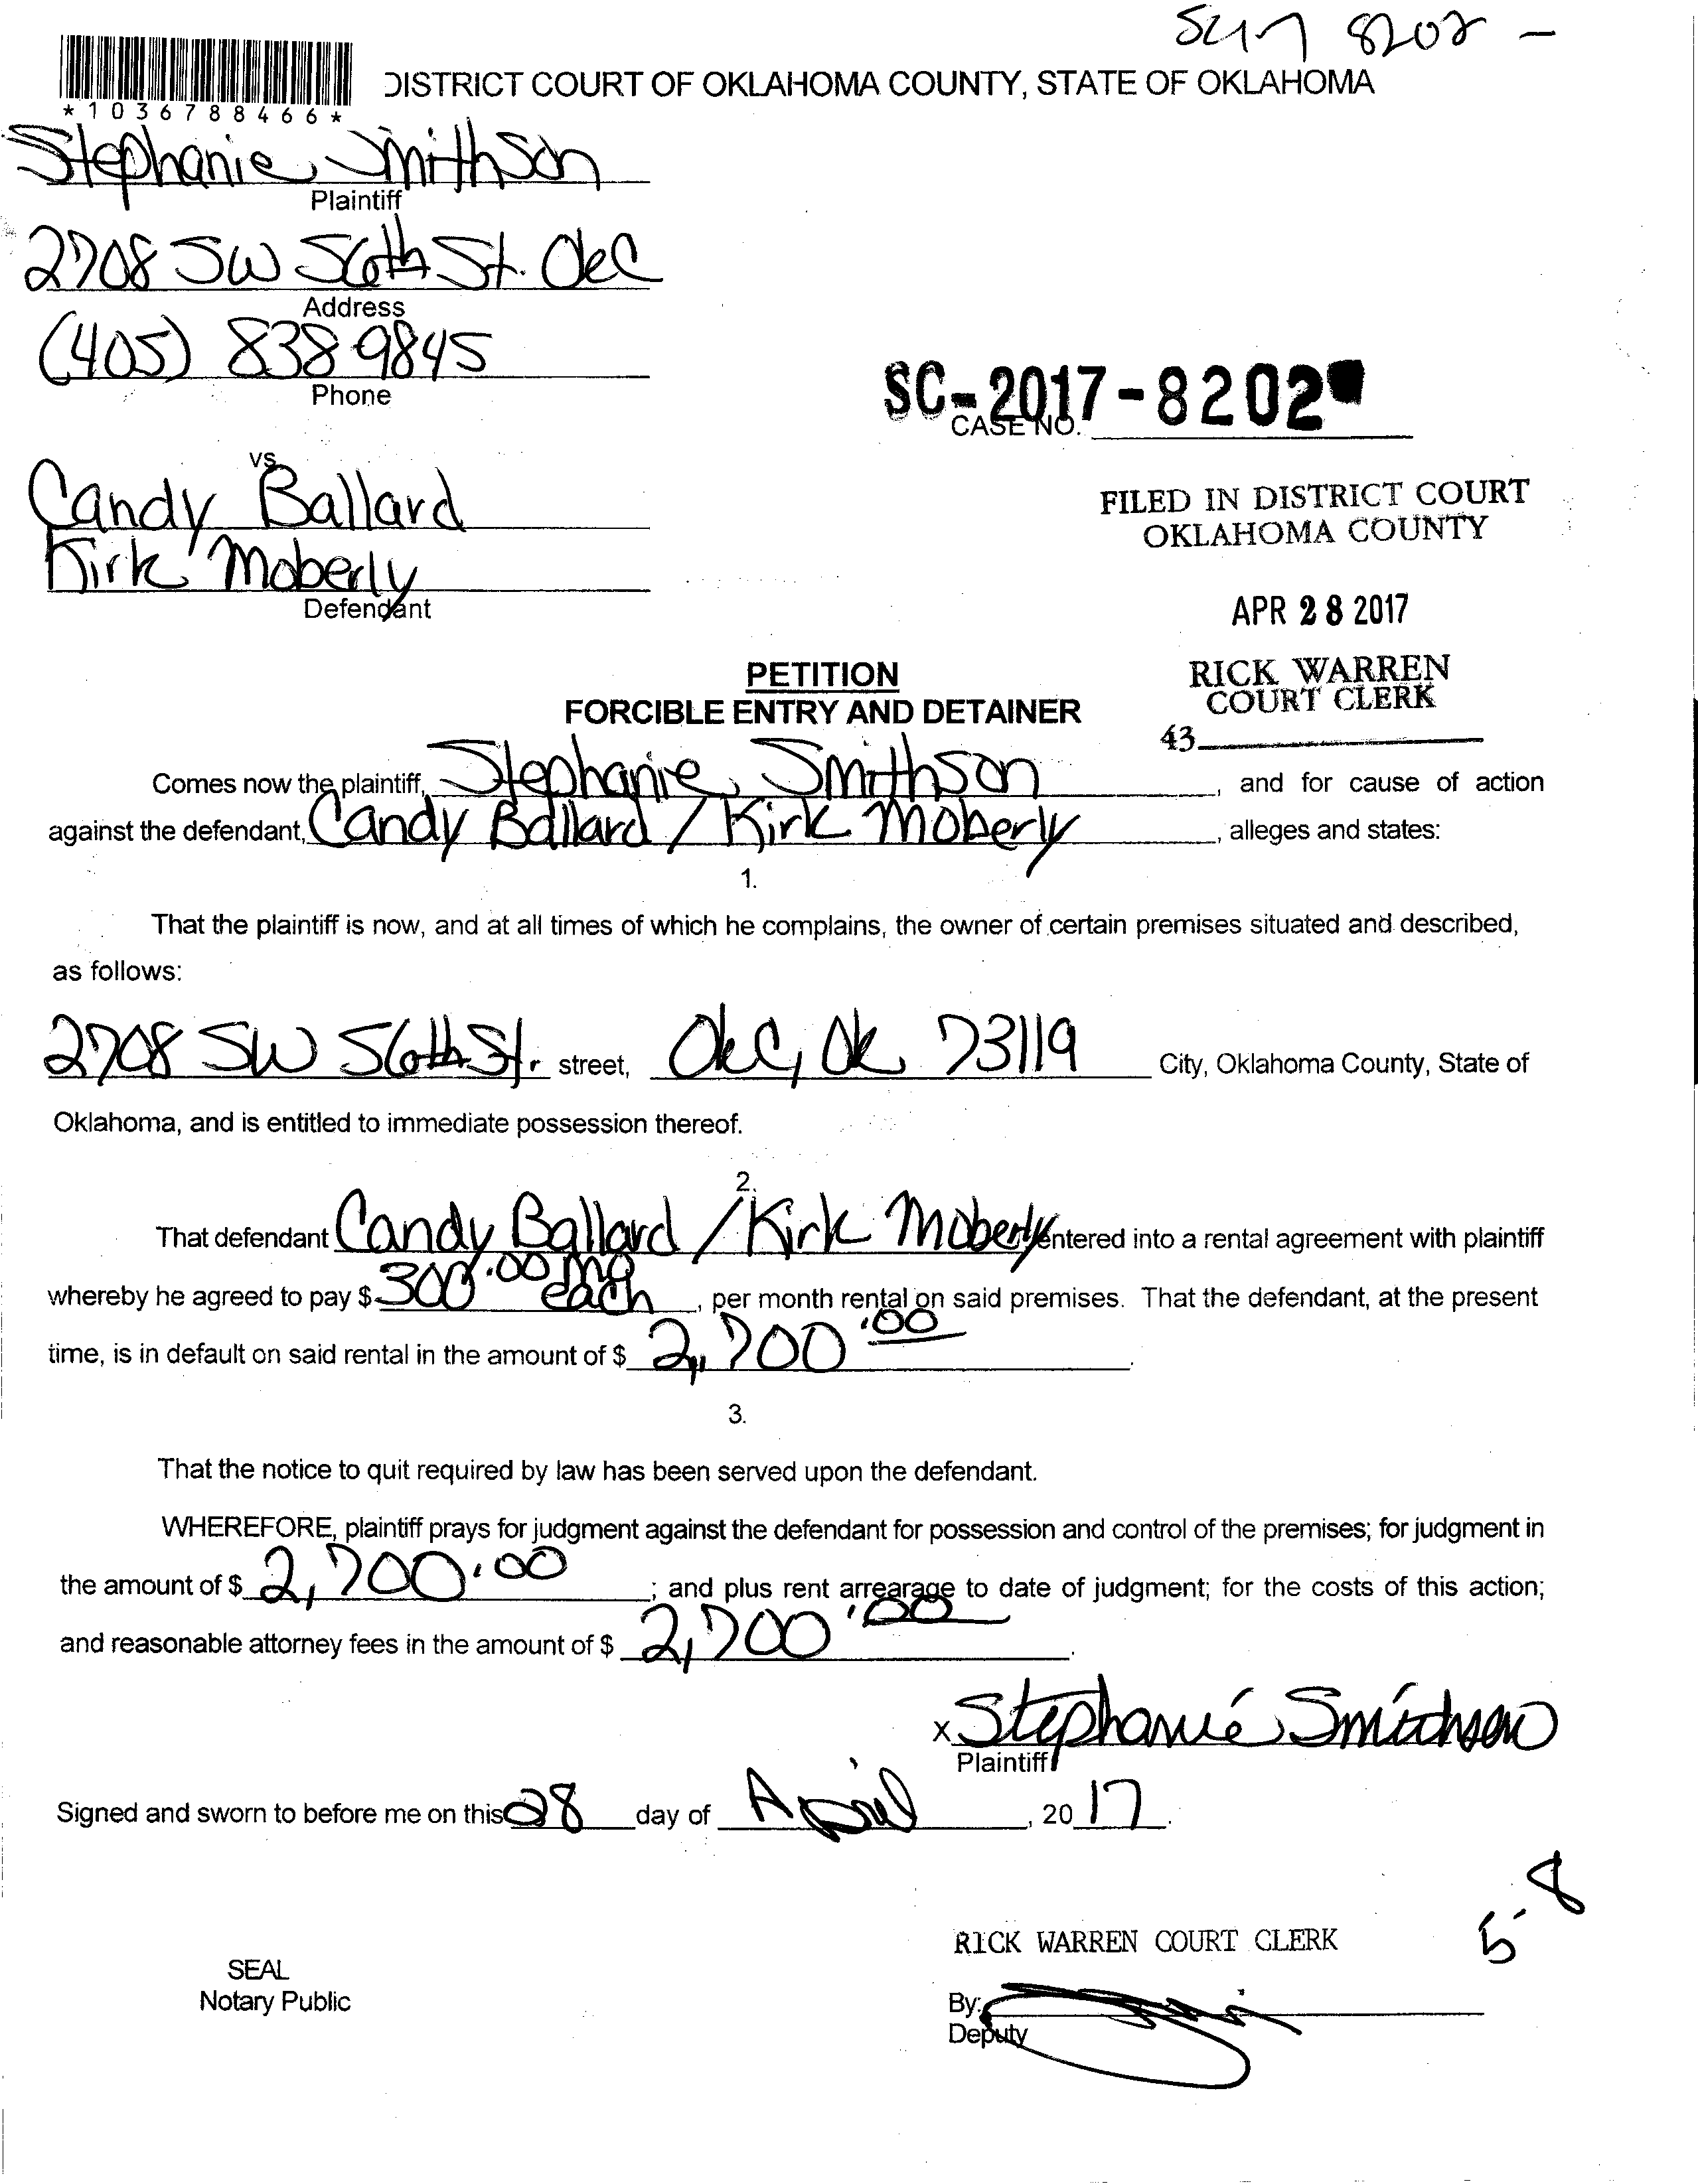 SC17 8202 -
*1036788466*
DISTRICT COURT OF OKLAHOMA COUNTY, STATE OF OKLAHOMA
Stephanie Smithson
Plaintiff
2708 SW 56th St. OKC
Address
(405) 838 9845
Phone
SC-2017-8202
CASE NO.
vs
Candy Ballard
Kirk Moberly
Defendant
FILED IN DISTRICT COURT
OKLAHOMA COUNTY
APR 28 2017
RICK WARREN
COURT CLERK
43
PETITION
FORCIBLE ENTRY AND DETAINER
Comes now the plaintiff, Stephanie Smithson, and for cause of action
against the defendant, Candy Ballard / Kirk Moberly, alleges and states:
1.
That the plaintiff is now, and at all times of which he complains, the owner of certain premises situated and described,
as follows:
2708 SW 56th St. street, OKC, OK 73119 City, Oklahoma County, State of
Oklahoma, and is entitled to immediate possession thereof.
2.
That defendant Candy Ballard / Kirk Moberly entered into a rental agreement with plaintiff
whereby he agreed to pay $ 300.00 mo each, per month rental on said premises. That the defendant, at the present
time, is in default on said rental in the amount of $ 2,700.00.
3.
That the notice to quit required by law has been served upon the defendant.
WHEREFORE, plaintiff prays for judgment against the defendant for possession and control of the premises; for judgment in
the amount of $ 2,700.00; and plus rent arrearage to date of judgment; for the costs of this action;
and reasonable attorney fees in the amount of $ 2,700.00.
x Stephanie Smithson
Plaintiff
Signed and sworn to before me on this 28 day of April, 20 17.
5-8
RICK WARREN COURT CLERK
SEAL
Notary Public
By:
Deputy